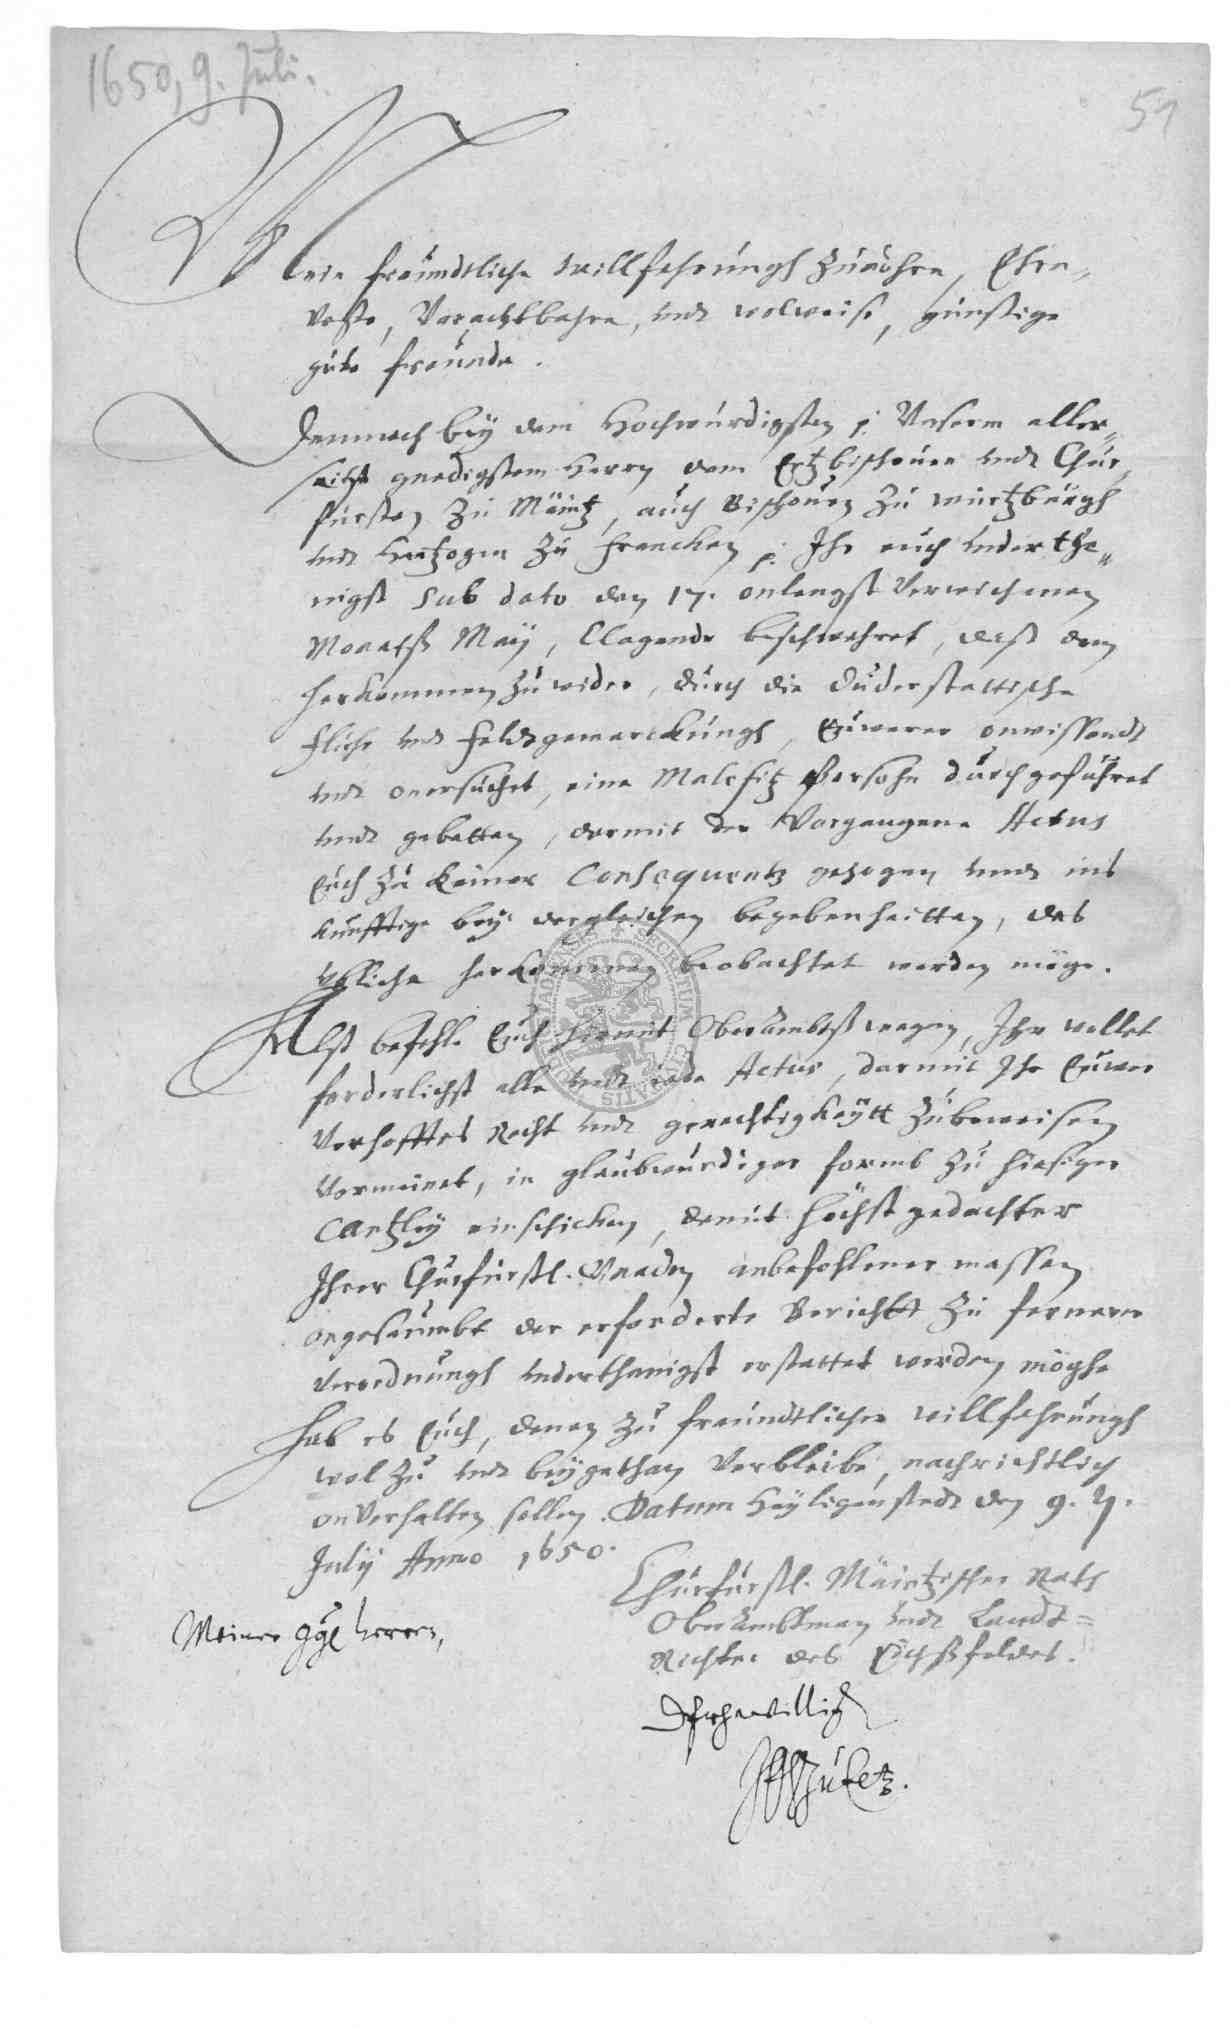 1650, 9. Juli.
51
Mein freündtliche willfahrüngh zuuohrn, Ehrn„
Veste, Vorachtbahre, undt wolweise, günstige
gute freünde.
Demnach bey dem Hochwürdigsten p: Unserm aller„
seitß gnedigstem Herrn dem Ertzbischouen undt Chur„
fürsten Zu Mäintz, auch Bischouen Zu Würtzburgh
undt Hertzogen Zu Francken p: Ihr euch underthe„
nigst sub dato den 17. onlengst Verwichenen
Monatß Maij, Clagende beschwehret, daß dem
herkommen Zuwider, durch die Duderstattische
Fluhr undt feldtgemarckungh, Euwerer onwissendt
undt onersucht, eine Malefitz Persohn durchgeführet
undt gebetten, darmit der Vorgangene Actus
Euch Zu keiner Consequentz gezogen undt ins
künfftige bey dergleichen begebenheitten, das
übliche herkommen beobachtet werden möge.
Alß befehle Euch hiemit OberAmbtß wegen, Ihr wollet
forderlichst alle undt jede Actus, darmit Ihr Euwer
Verhofftes Recht undt gerechtigkeytt Zubeweisen
Vermeinet, in glaubwürdiger formb Zu hiesiger
Cantzley einschicken, damit höchstgedachter
Ihrer Churfürstl. Gnaden anbefohlener massen
ongeseumbt der erforderte Bericht Zu fernerer
Verordnungh underthanigst erstattet werden möghe
Hab es Euch, denen Zu freündtlicher willfahrungh
wol Zu undt beygethan Verbleibe, nachrichtlich
onVerhalten sollen. Datum Heyligenstadt den 9.
July Anno 1650.
Churfürstl. Mäintzischer Rath
OberAmbtman undt Landt=
Richter des Eichßfeldes.
Meiner ggl herren,